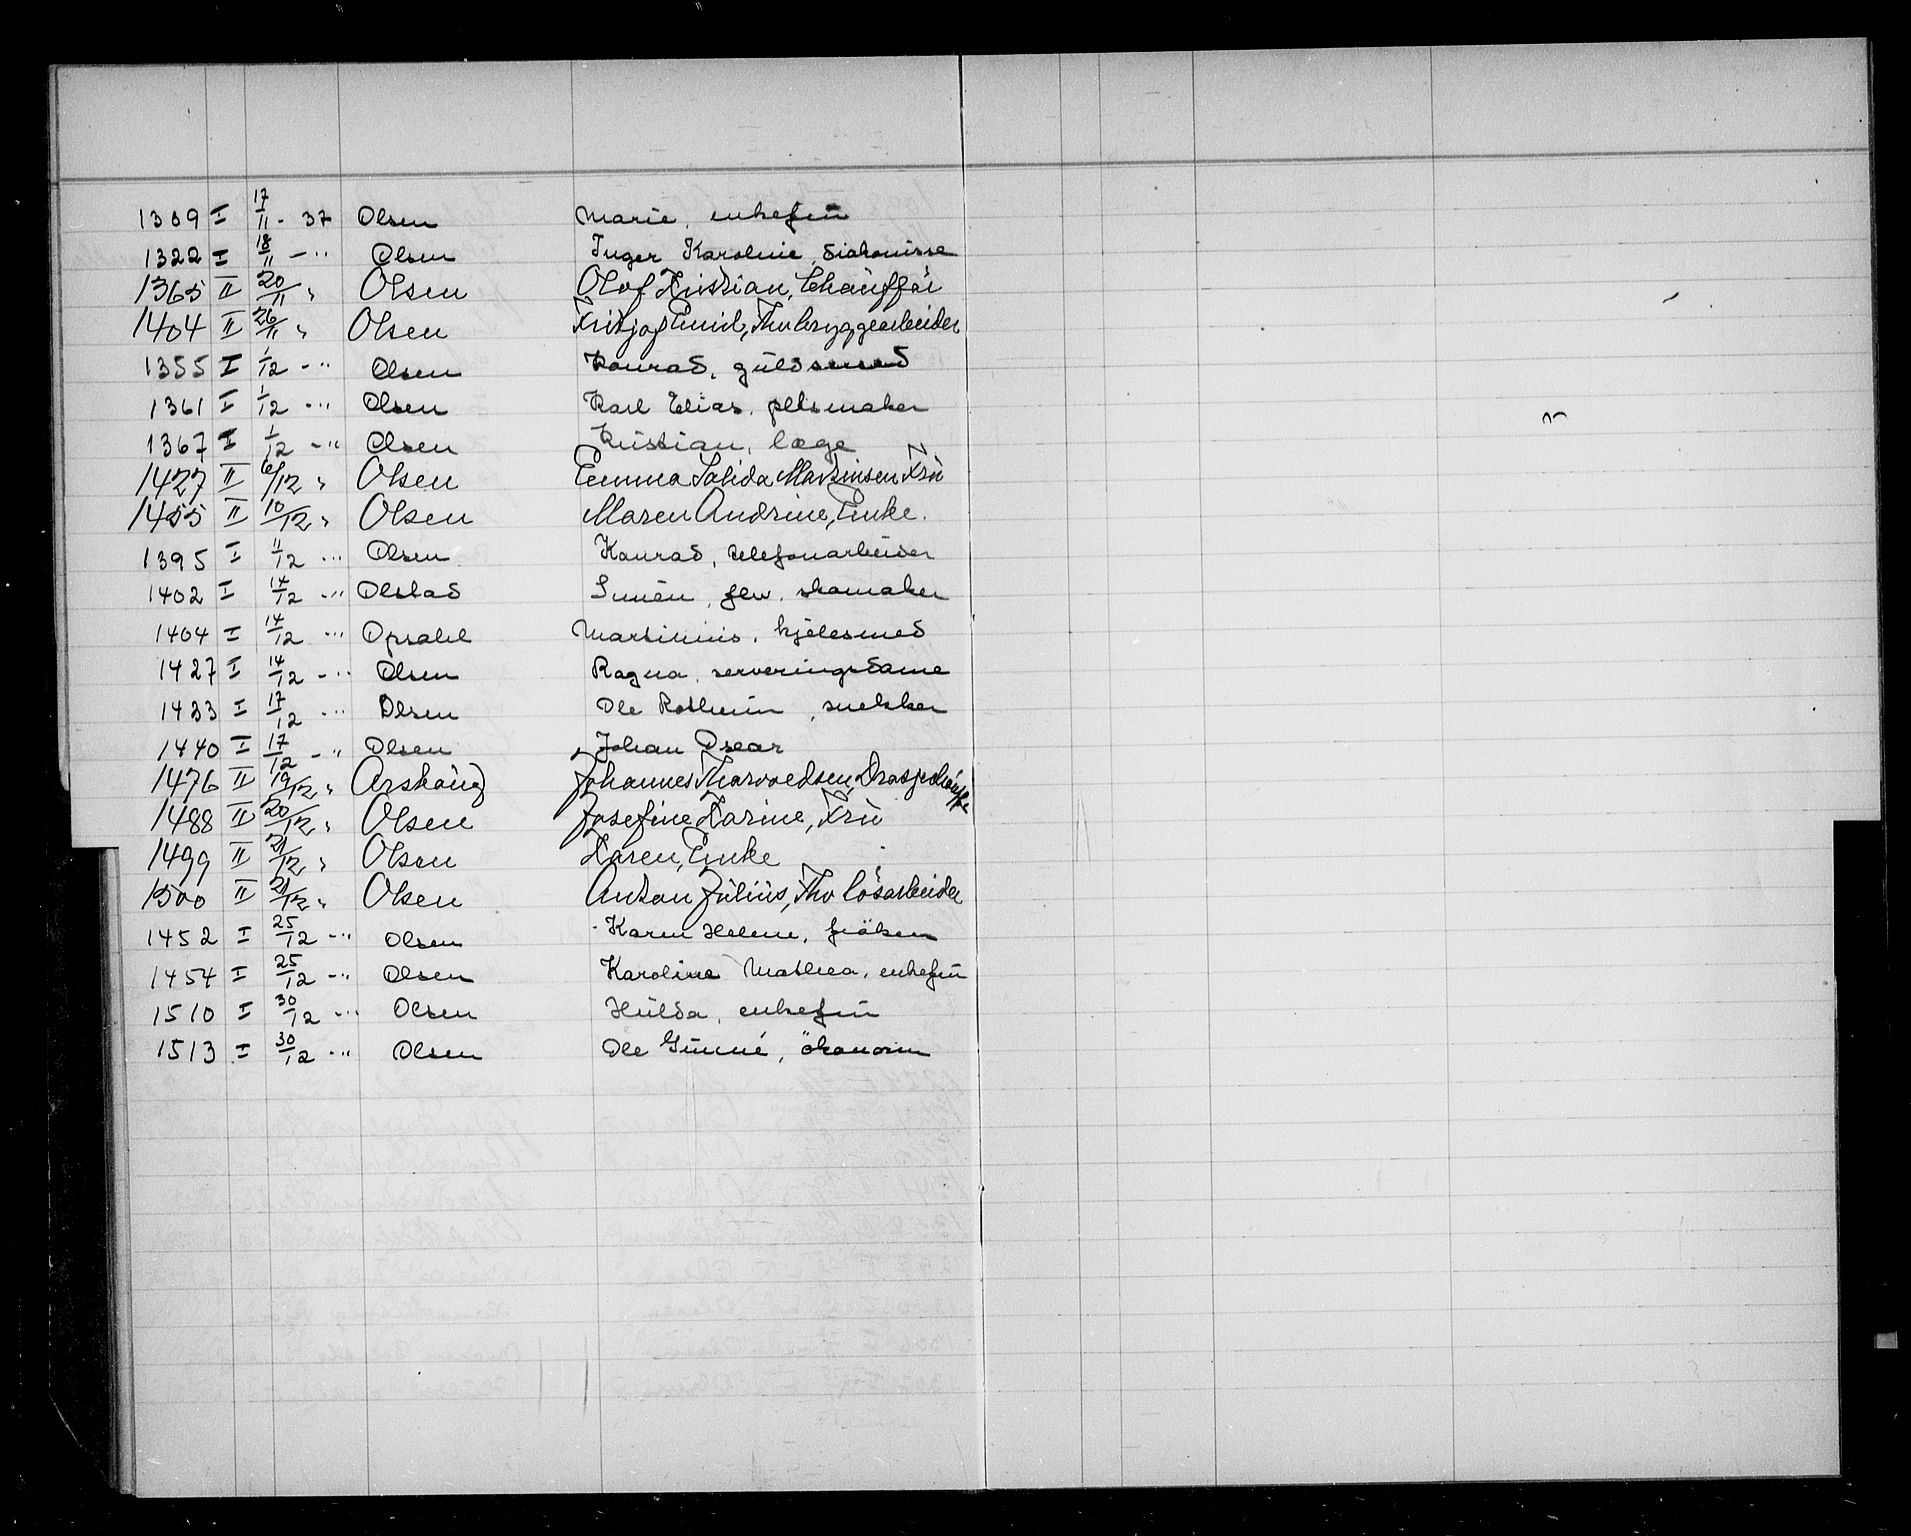 1309 I 17/11 - 37 Olsen Marie, enkefrü
1322 I 18/11 - " Olsen Inger Karoline, diakonisse
1365 II 20/11 " Olsen Olof Kristian, Chauffør
1404 II 26/11 " Olsen Fritjof Emil, Fhv bryggearbeider
1355 I 1/12 - " Olsen Konrad, güldsmed
1361 I 1/12 - " Olsen Karl Elias, peltsmaker
1367 I 1/12 - " Olsen Kristian, læge
1427 II 6/12 " Olsen Emma Martinsen Frü
1455 II 10/12 " Olsen Maren Andrine, Enke.
1395 I 11/12 - " Olsen Konrad, telefonarbeider
1402 I 14/12 - " Olstad Simen, fhv. skomaker
1404 I 14/12 - " Opsahl Martinius, kjelesmed
1427 I 14/12 - " Olsen Ragna, serveringsdame
1433 I 17/12 - " Olsen Ole, snekker
1440 I 17/12 - " Olsen Johan Oscar
1476 II 19/12 " Johannes Thorvaldsen,
1488 II 20/12 " Olsen Josefine Karine, Frü
1499 II 21/12 " Olsen Karen, Enke
1500 II 21/12 " Olsen Anton Jülius, Fhv løsarbeider
1452 I 25/12 - " Olsen Karen Helene, frøken
1454 I 25/12 - " Olsen Karoline Mathea, enkefrü
1510 I 30/12 - " Olsen Hülda, enkefrü
1513 I 30/12 - " Olsen Ole, økonom